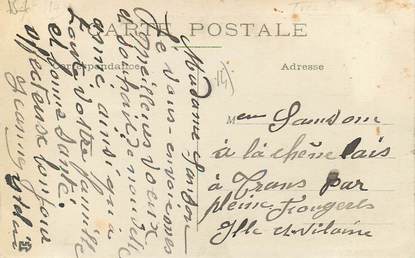 CARTE POSTALE
Correspondance
Adresse
Madame Sanson
Je vous envoie mes
meilleurs voeux
et souhaits de nouvelle
année ainsi qu'a
toute votre famille
et bonne Santé.
affectueux bonjour
Jeanne
Mem Sanson
a la chêne lais
à Trans par
pleine Fougeres
Ille et Vilaine